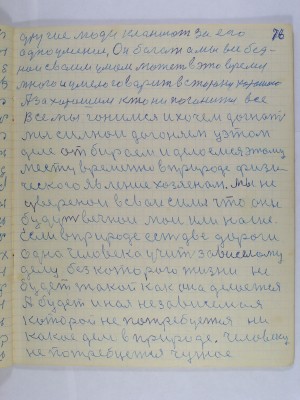 76
другие люди кланяют за его
одноумение, Он богат а мы все бед-
ное своим умом может в это время
много и умело говорит в сторону хорошего
А за хорошим кто не погонится все
Все мы гонимся и хочем догнать
мы силком догоняем у этом
деле отбираем и делаемся этому
месту временно в природе физи-
ческого явление хозяевам. Мы не
уверенны в свои силы что они
будут вечной мои или наше.
Если в природе есть две дороги
одна человека учит зависимому
делу без которого жизни не
будет такой как она делается
А будет иная независимая
которой не потребуется ни
какое дело в природе. Человеку
не потребуется чужое